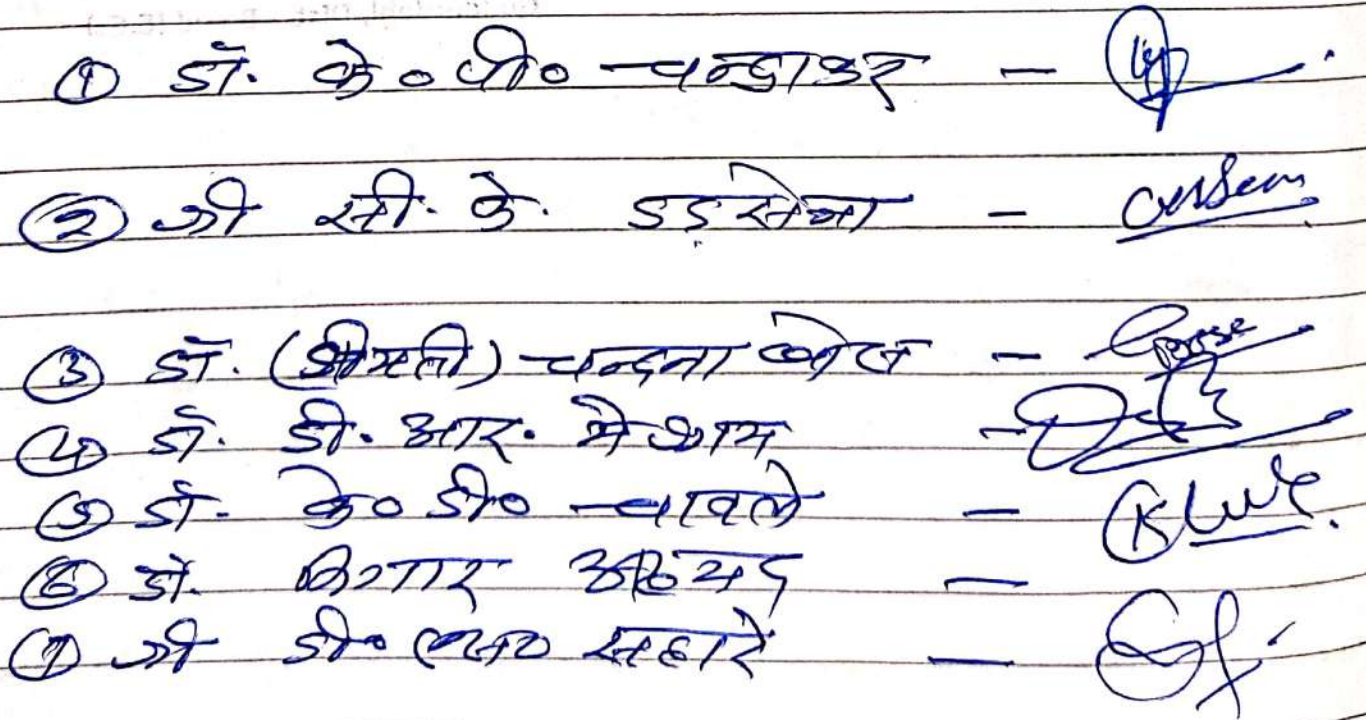 ① डॉ. के० पी० चन्द्राकर -
② श्री सी. के. डड़सेना -
③ डॉ. (श्रीमती) चन्दना बोस - Bose
④ डॉ. डी. आर. मेश्राम -
⑤ डॉ. के० डी० चावले -
⑥ डॉ. निगार अहमद -
⑦ श्री डी० एल० सहारे -